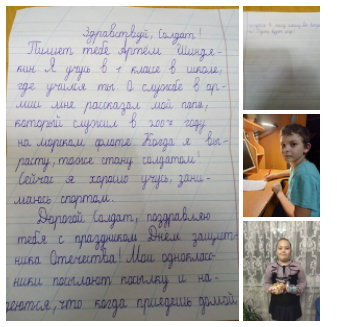 Здравствуй, Солдат!
Пишет тебе Артём Шиндя-
кин. Я учусь в 1 классе в школе,
где учился ты. О службе в ар-
мии мне рассказал мой папа,
который служил в 2007 году
на морском флоте. Когда я вы-
расту, тоже стану солдатом!
Сейчас я хорошо учусь, зани-
маюсь спортом.
Дорогой Солдат, поздравляю
тебя с праздником Днём защит-
ника Отечества! Мои однокласс-
ники посылают посылку и на-
деются, что когда приедешь домой